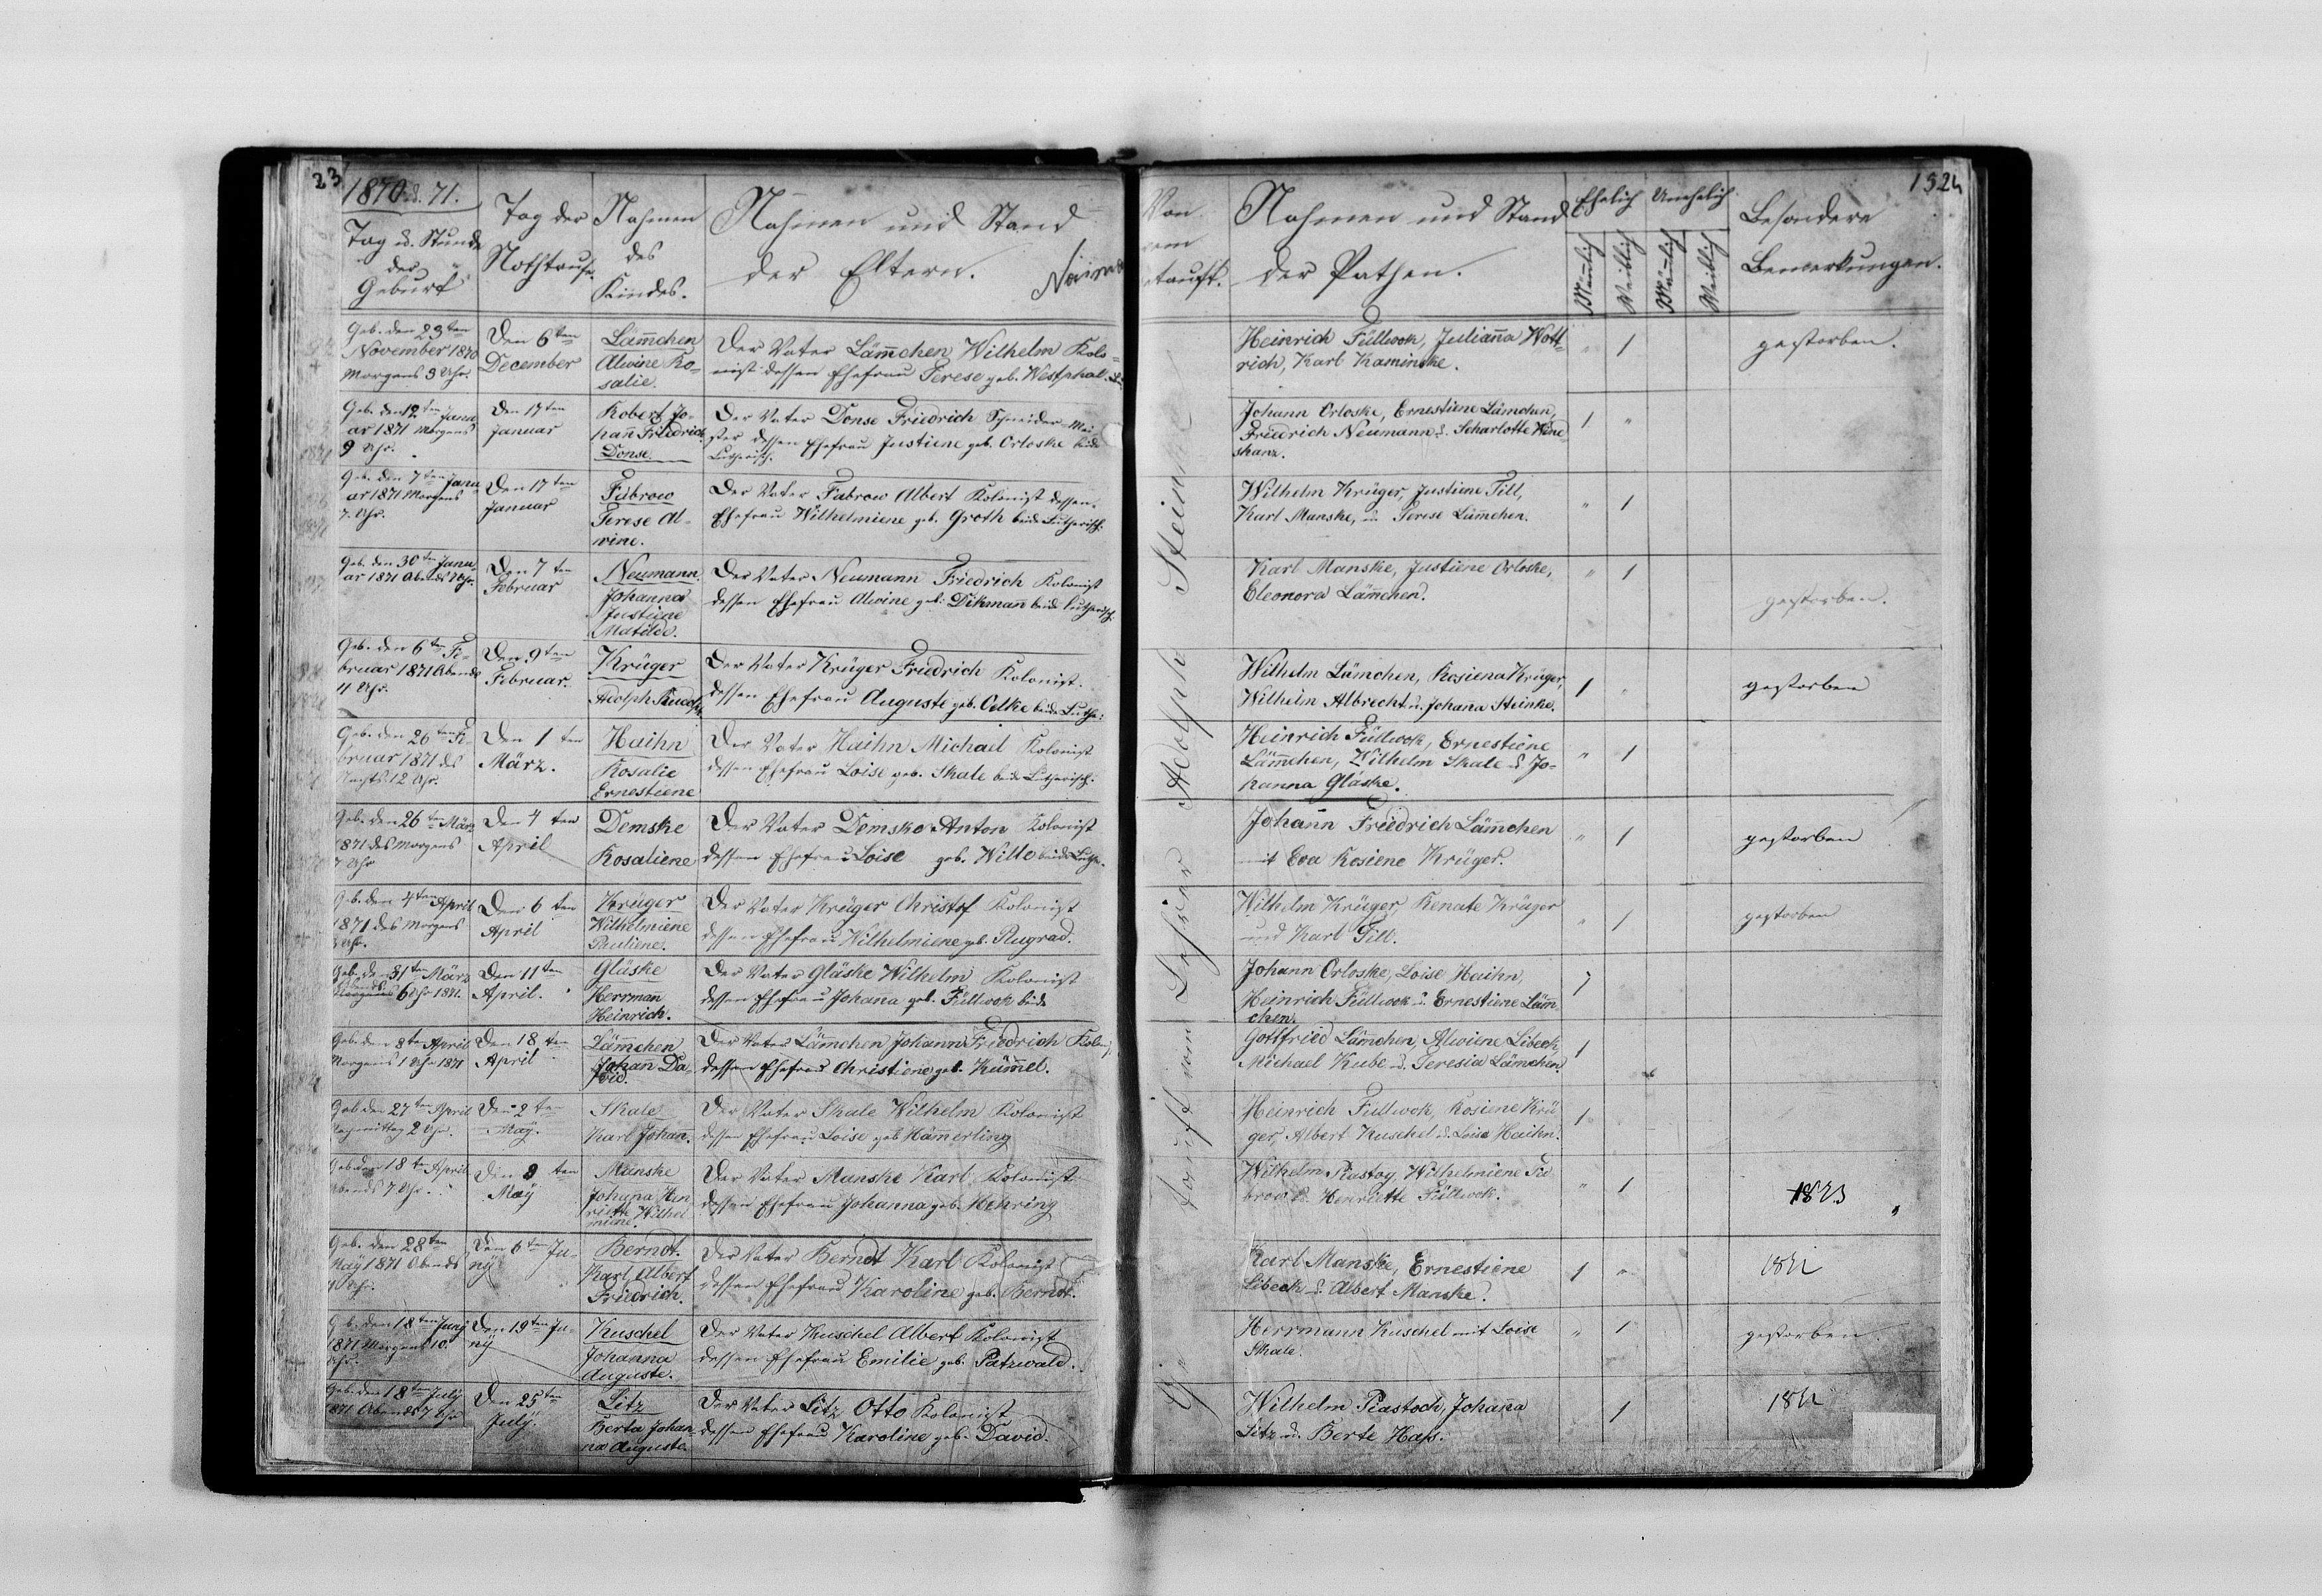 23
1870 u. 71.
Tag u. Stunde
der
Geburt
Tag der
Nothtaufe.
Nahmen
des
Kindes.
Nahmen und Stand
der Eltern.
Geb. den 23ten
November 1870
Morgens 3 Uhr.
Den 6ten
December
Läm̄chen
Alwine Ro-
salie.
Der Vater Läm̄chen Wilhelm Kolo-
nist dessen Ehefrau Terese geb. Westphal.
Geb. den 12ten Janu
ar 1871 Morgens
9 Uhr.
Den 17ten
Januar
Robert Jo-
han̄ Friedrich
Donse.
Der Vater Donse Friedrich Schneider-Mei-
ster dessen Ehefrau Justiene geb. Orloske beide
Lutherisch.
Geb. den 7ten Janu
ar 1871 Morgens
7 Uhr.
Den 17ten
Januar
Fabrow
Terese Al-
wine.
Der Vater Fabrow Albert Kolonist dessen
Ehefrau Wilhelmiene geb. Groth beide Lutherisch.
Geb. den 30ten Janu-
ar 1871 Abends Uhr.
Den 7ten
Februar
Neumann
Johanna
Justiene
Matilde.
Der Vater Neumann Friedrich Kolonist
dessen Ehefrau Alwine geb. Dikman̄ beide Lutherisch.
Geb. den 6ten Fe-
bruar 1871 Abends
11 Uhr.
Den 9ten
Februar.
Krüger
Adolph Rudolph
Der Vater Krüger Friedrich Kolonist.
dessen Ehefrau Auguste geb. Oelke beide Luthe:
Geb. den 26ten Fe-
bruar 1871 des
Nachts 12 Uhr.
Den 1ten
März.
Haihn
Rosalie
Ernestiene
Der Vater Haihn Michael Kolonist
dessen Ehefrau Loise geb. Skale beide Lutherisch.
Geb. den 26ten März
1871 des Morgens
7 Uhr
Den 4ten
April
Demske
Rosaliene
Der Vater Demske Anton Kolonist
dessen Ehefrau Loise geb. Witto beide Luthe.
Geb. den 4ten April
1871 des Morgens
Uhr.
Den 6ten
April
Krüger
Wilhelmiene
Pauliene.
Der Vater Krüger Christof Kolonist
dessen Ehefrau Wilhelmiene geb. Rugrad.
Geb. den 31ten März
Abends
6 Uhr 1871.
Den 11ten
April.
Gläske
Herrman̄
Heinrich.
Der Vater Gläske Wilhelm Kolonist
dessen Ehefrau Johana geb. Füllwok beide
Geb. den 8ten April
Morgens 1 Uhr 1871
Den 18ten
April
Läm̄chen
Johan̄ Da-
vid.
Der Vater Läm̄chen Johann Friedrich Kolon.
dessen Ehefrau Christiene geb. Küm̄el.
Geb. den 27ten April
Nachmittag 2 Uhr.
Den 2ten
May.
Skale
Karl Johan̄.
Der Vater Skale Wilhelm Kolonist
dessen Ehefrau Loise geb. Häm̄erling
Geb. den 18ten April
Abends 7 Uhr.
Den 9ten
May
Manske
Johana Hen
riette Wilhel
miene.
Der Vater Manske Karl Kolonist
dessen Ehefrau Johanna geb. Mehring
Geb. den 28ten
May 1871 Abends
Uhr.
Den 6ten Ju-
ny
Berndt.
Karl Albert
Friedrich.
Der Vater Berndt Karl Kolonist
dessen Ehefrau Karoline geb. Berndt.
Geb. den 18ten Juny
1871 Morgens 10
Uhr.
Den 19ten Ju-
ny
Kuschel
Johanna
Auguste.
Der Vater Kuschel Albert Kolonist
dessen Ehefrau Emilie geb. Patzwald.
Geb. den 18ten July
1871 Abends 7 Uhr
Den 25ten
July.
Litz
Berta Johan-
na Auguste.
Der Vater Litz Otto Kolonist
dessen Ehefrau Karoline geb. David.
Von
wem
getauft.
Getauft vom Lehrer Adolph Steinke
Nahmen und Stand
der Pathen.
Ehelich
Unehelich
Mänlich
Weiblich
Mänlich
Weiblich
Besondere
Bemerkungen.
Heinrich Füllwok, Julian̄a Wott-
rich, Karl Kaminske.
1
gestorben.
Johann Orloske, Ernestiene Lämchen,
Friedrich Neumann u. Scharlotte Wene
skanz.
1
Wilhelm Krüger, Justiene Till,
Karl Manske, u. Terese Läm̄chen.
1
Karl Manske, Justiene Orloske,
Eleonora Läm̄chen.
1
gestorben.
Wilhelm Lämchen, Rosiena Krüger,
Wilhelm Albrecht u. Johan̄a Steinke.
1
gestorben
Heinrich Füllwok, Ernestiene
Läm̄chen, Wilhelm Skale u. Jo-
hanna Gläske.
1
Johan̄n Friedrich Läm̄chen
mit Eva Rosiene Krüger.
1
gestorben
Wilhelm Krüger, Renate Krüger
und Karl Till.
1
gestorben
Johann Orloske, Loise Haihn,
Heinrich Füllwok u. Ernestiene Läm̄
chen.
1
Gottfried Läm̄chen, Alwiene Libeck,
Michael Kube u. Teresia Lämchen.
1
Heinrich Füllwok, Rosiene Krü
ger, Albert Kuschel u. Loise Haihn.
1
Wilhelm Piastog, Wilhelmiene Fa
brow u. Henriette Füllwok.
1
1873
Karl Manske, Ernestiene
Libeck u. Albert Manske.
1
Herrmann Kuschel mit Loise
Skale.
1
gestorben.
Wilhelm Piastoch, Johan̄a
Litz u. Berte Haß.
1